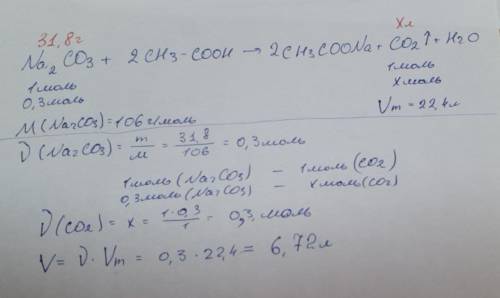 31,8г хл
Na2CO3 + 2CH3-COOH → 2CH3COONa + CO2↑ + H2O
1моль 1моль
0,3моль xмоль
M(Na2CO3)=106 г/моль Vm = 22,4л
ν(Na2CO3) = m/M = 31,8/106 = 0,3моль
1моль(Na2CO3) – 1моль(CO2)
0,3моль(Na2CO3) – xмоль(CO2)
ν(CO2) = x = 1·0,3/1 = 0,3 моль
V = ν · Vm = 0,3 · 22,4 = 6,72л